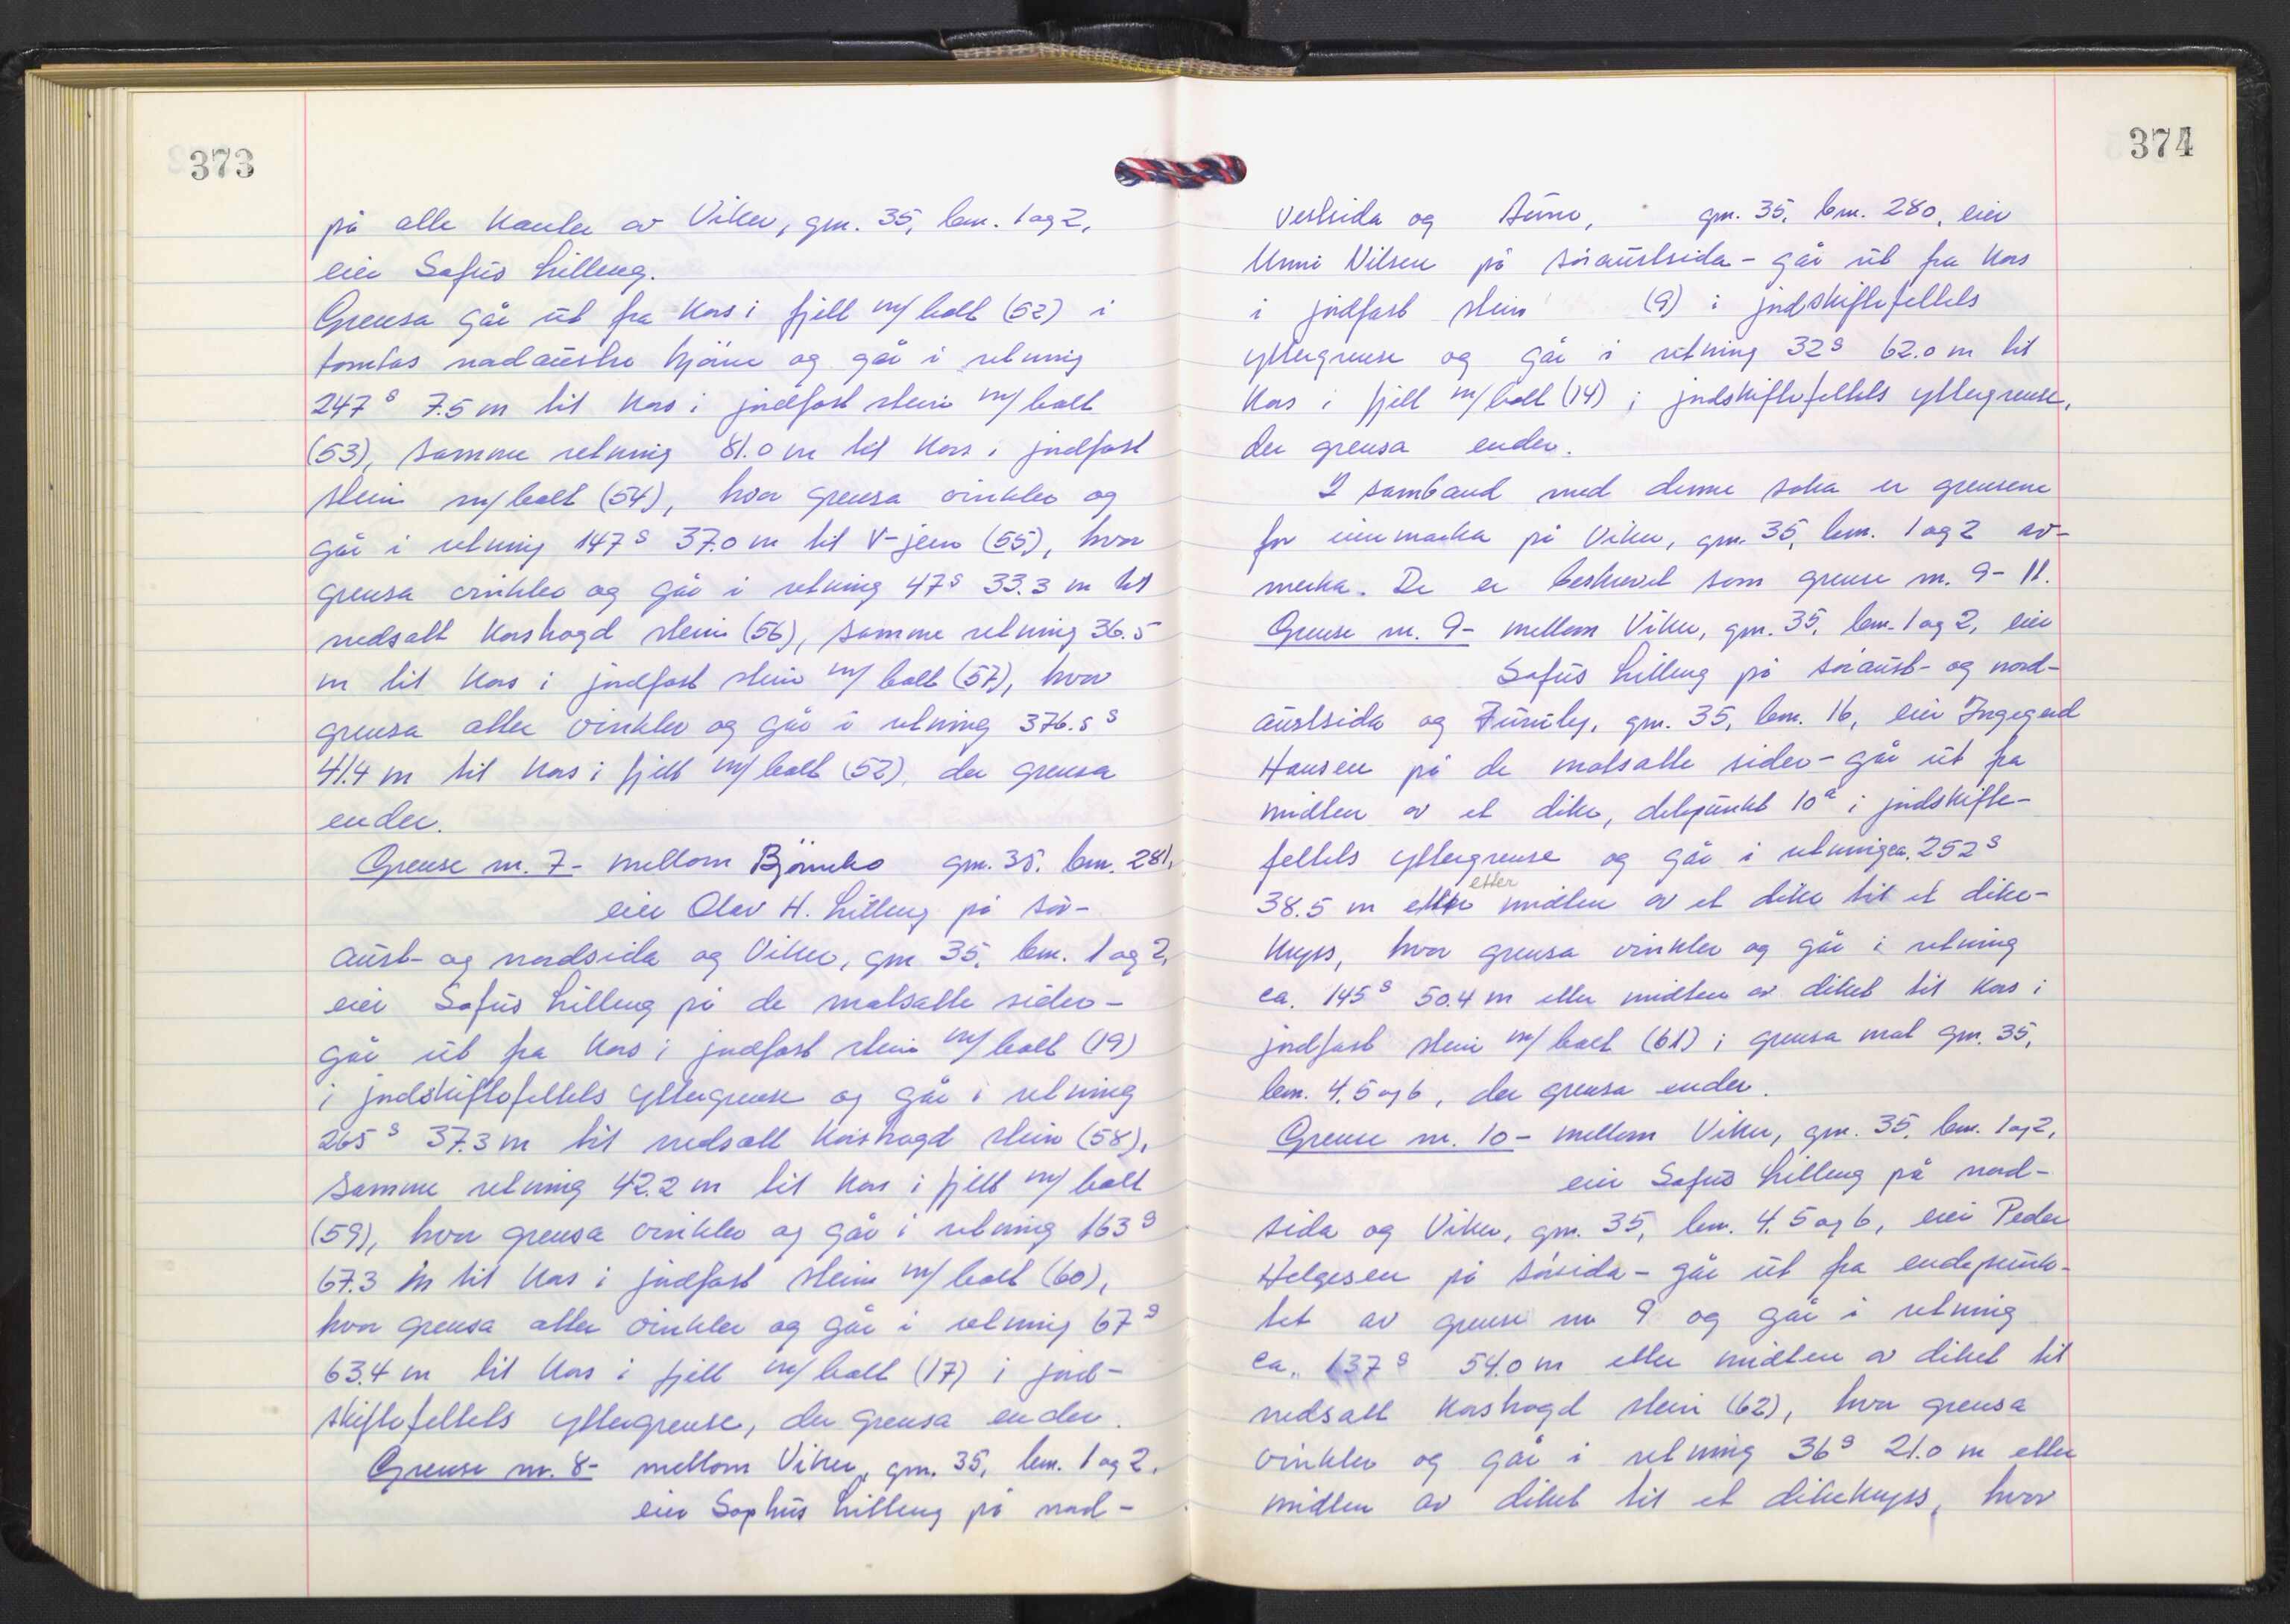 373
på alle kanter av Viken, gnr. 35, bnr. 1 og 2,
eier Sofus Lilleng.
Grensa går ut fra kors i fjell m/bolt (52) i
tomtas nordaustre hjørne og går i retning
247 g 7.5 m til kors i jordfast stein m/bolt
(53), samme retning 81.0 m til kors i jordfast
stein m/bolt (54), hvor grensa vinkler og
går i retning 147 g 37.0 m til V-jern (55), hvor
grensa vinkler og går i retning 47 g 33.3 m til
nedsatt korshogd stein (56), samme retning 36.5
m til kors i jordfast stein m/bolt (57), hvor
grensa atter vinkler og går i retning 376.5 g
41.4 m til kors i fjell m/bolt (52), der grensa
ender.
Grense nr. 7 - mellom gnr. 35. bnr. 281,
eier Olav H. Lilleng på sør-
aust- og nordsida og Viken, gnr. 35, bnr. 1 og 2,
eier Sofus Lilleng på de motsatte sider -
går ut fra kors i jordfast stein m/bolt (19)
i jordskiftefeltets yttergrense og går i retning
265 g 37.3 m til nedsatt korshogd stein (58),
samme retning 42.2 m til kors i fjell m/bolt
(59), hvor grensa vinkler og går i retning 163 g
67.3 m til kors i jordfast stein m/bolt (60),
hvor grensa atter vinkler og går i retning 67 g
63.4 m til kors i fjell m/bolt (17) i jord-
skiftefeltets yttergrense, der grensa ender.
Grense nr. 8 - mellom Viken, gnr. 35, bnr. 1 og 2,
eier Sophus Lilleng på nord-
374
vestsida og gnr. 35, bnr. 280, eier
Unni Nilsen på søraustsida - går ut fra kors
i jordfast stein (9) i jordskiftefeltets
yttergrense og går i retning 32 g 62.0 m til
kors i fjell m/bolt (14) i jordskiftefeltets yttergrense,
der grensa ender.
I samband med denne saka er grensene
for innmarka på Viken, gnr. 35, bnr. 1 og 2 av-
merka. De er beskrevet som grense nr. 9 - 11.
Grense nr. 9 - mellom Viken, gnr. 35, bnr. 1 og 2, eier
Sofus Lilleng på søraust- og nord-
austsida og Furuly, gnr. 35, bnr. 16, eier Ingegerd
Hansen på de motsatte sider - går ut fra
midten av et dike, delepunkt 10a i jordskifte-
feltets yttergrense og går i retning ca. 252 g
38.5 m etter midten av et dike til et dike-
kryss, hvor grensa vinkler og går i retning
ca. 145 g 50.4 m etter midten av diket til kors i
jordfast stein m/bolt (61) i grensa mot gnr. 35,
bnr. 4, 5 og 6, der grensa ender.
Grense nr. 10 - mellom Viken, gnr. 35, bnr. 1 og 2,
eier Sofus Lilleng på nord-
sida og Viken, gnr. 35, bnr. 4, 5 og 6, eier Peder
Helgesen på sørsida - går ut fra endepunk-
tet av grense nr 9 og går i retning
ca. 137 g 54.0 m etter midten av diket til
nedsatt korshogd stein (62), hvor grensa
vinkler og går i retning 36 g 21.0 m etter
midten av diket til et dikekryss, hvor